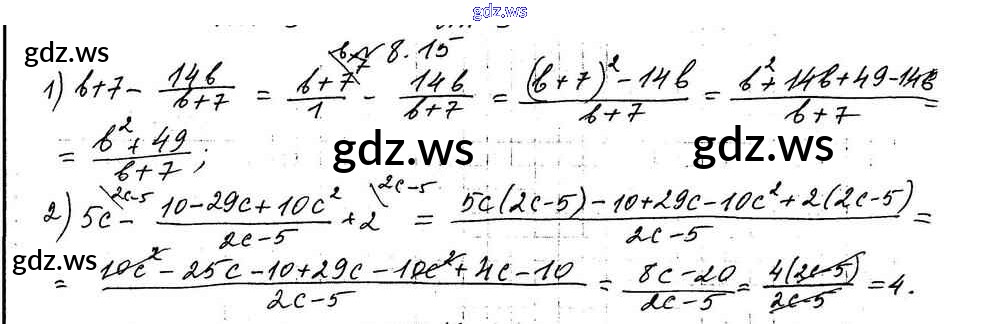 gdz.ws
№ 8.15
gdz.ws
1) b+7 - 14b/(b+7) = (b+7)/1 - 14b/(b+7) = ((b+7)² - 14b)/(b+7) = (b² + 14b + 49 - 14b)/(b+7) =
= (b² + 49)/(b+7);
gdz.ws gdz.ws
2) 5c - (10 - 29c + 10c²)/(2c-5) + 2 = (5c(2c-5) - 10 + 29c - 10c² + 2(2c-5))/(2c-5) =
gdz.ws gdz.ws
= (10c² - 25c - 10 + 29c - 10c² + 4c - 10)/(2c-5) = (8c-20)/(2c-5) = 4(2c-5)/(2c-5) = 4.